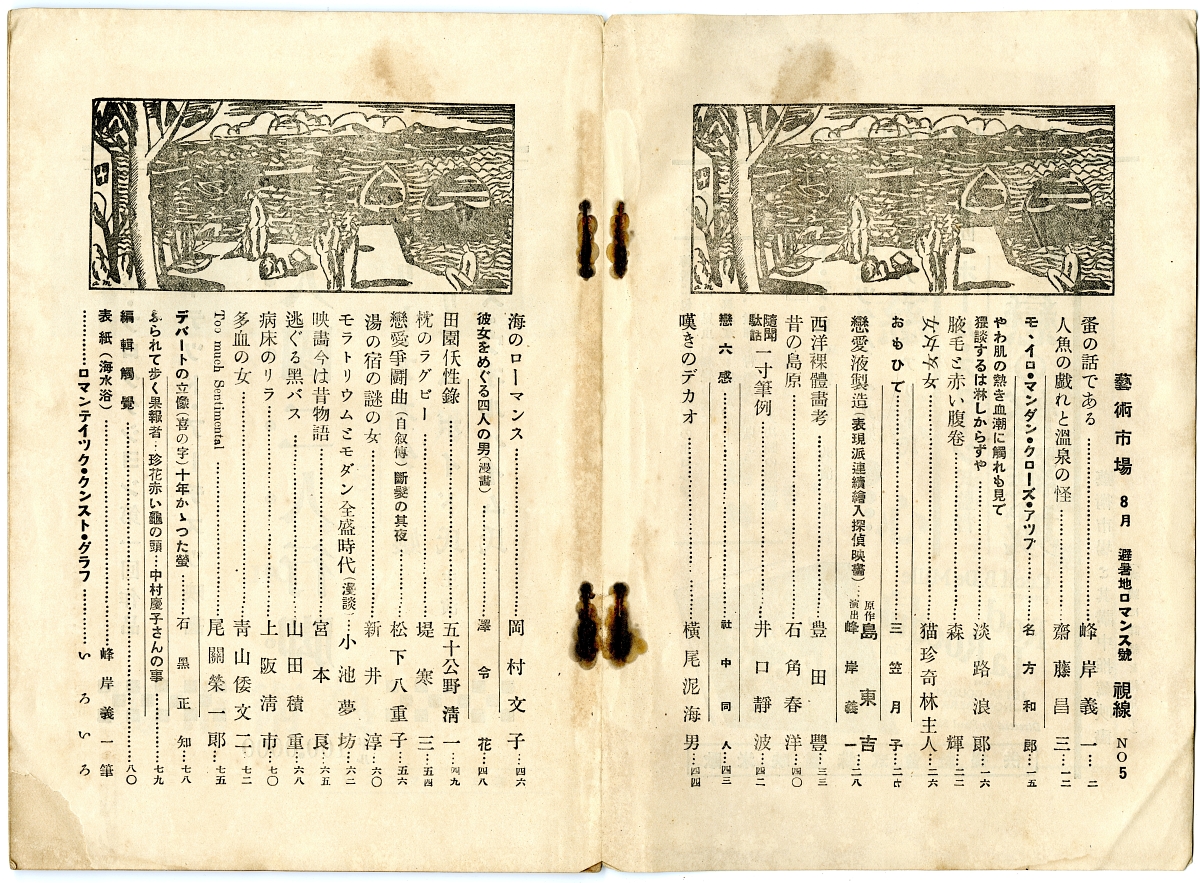 藝術市場 8月 避暑地ロマンス號 視線 NO5
蚤の話である…………峰岸義一…二
人魚の戯れと溫泉の怪…………齋藤昌三…一二
モ、イロ・マンダン・クローズ・アツプ…………名方和郎…一五
やわ肌の熱き血潮に觸れも見で
猥談するは淋しからずや…………淡路浪郎…一六
腋毛と赤い腹卷…………森輝…二二
女女女女…………猫珍奇林主人…二六
おもひで…………三笠月子…二七
戀愛液製造(表現派連續繪入探偵映畵) 原作島東吉 演出峰岸義一…二八
西洋裸體畵考…………豊田豐…三三
昔の島原…………石角春洋…四〇
隨聞駄話 一寸筆例…………井口靜波…四二
戀六感…………社中同人…四三
嘆きのデカオ…………橫尾泥海男…四四
海のローマンス…………岡村文子…四六
彼女をめぐる四人の男(漫畵)…………澤令花…四八
田園伬性錄…………五十公野淸一…四九
枕のラグビー…………堤寒三…五四
戀愛爭鬪曲(自叙傳)斷髮の其夜…………松下八重子…五六
湯の宿の謎の女…………新井淳…六〇
モラトリウムとモダン全盛時代(漫談)…小池夢坊…六二
映畵今は昔物語…………宮本良…六五
逃ぐる黑バス…………山田積重…六八
病床のリラ…………上阪淸市…七〇
多血の女…………靑山倭文二…七二
Too much Sentimental…………尾關榮一郎…七五
デパートの立像(喜の字)十年かゝつた螢…………石黑正知…七八
られて步く果報者…珍花赤い龜の頭…中村慶子さんの事…………七九
編輯觸覺…………八〇
表紙(海水浴)…………峰岸義一筆
…………ロマンテイック・クンスト・グラフ…………いろいろ